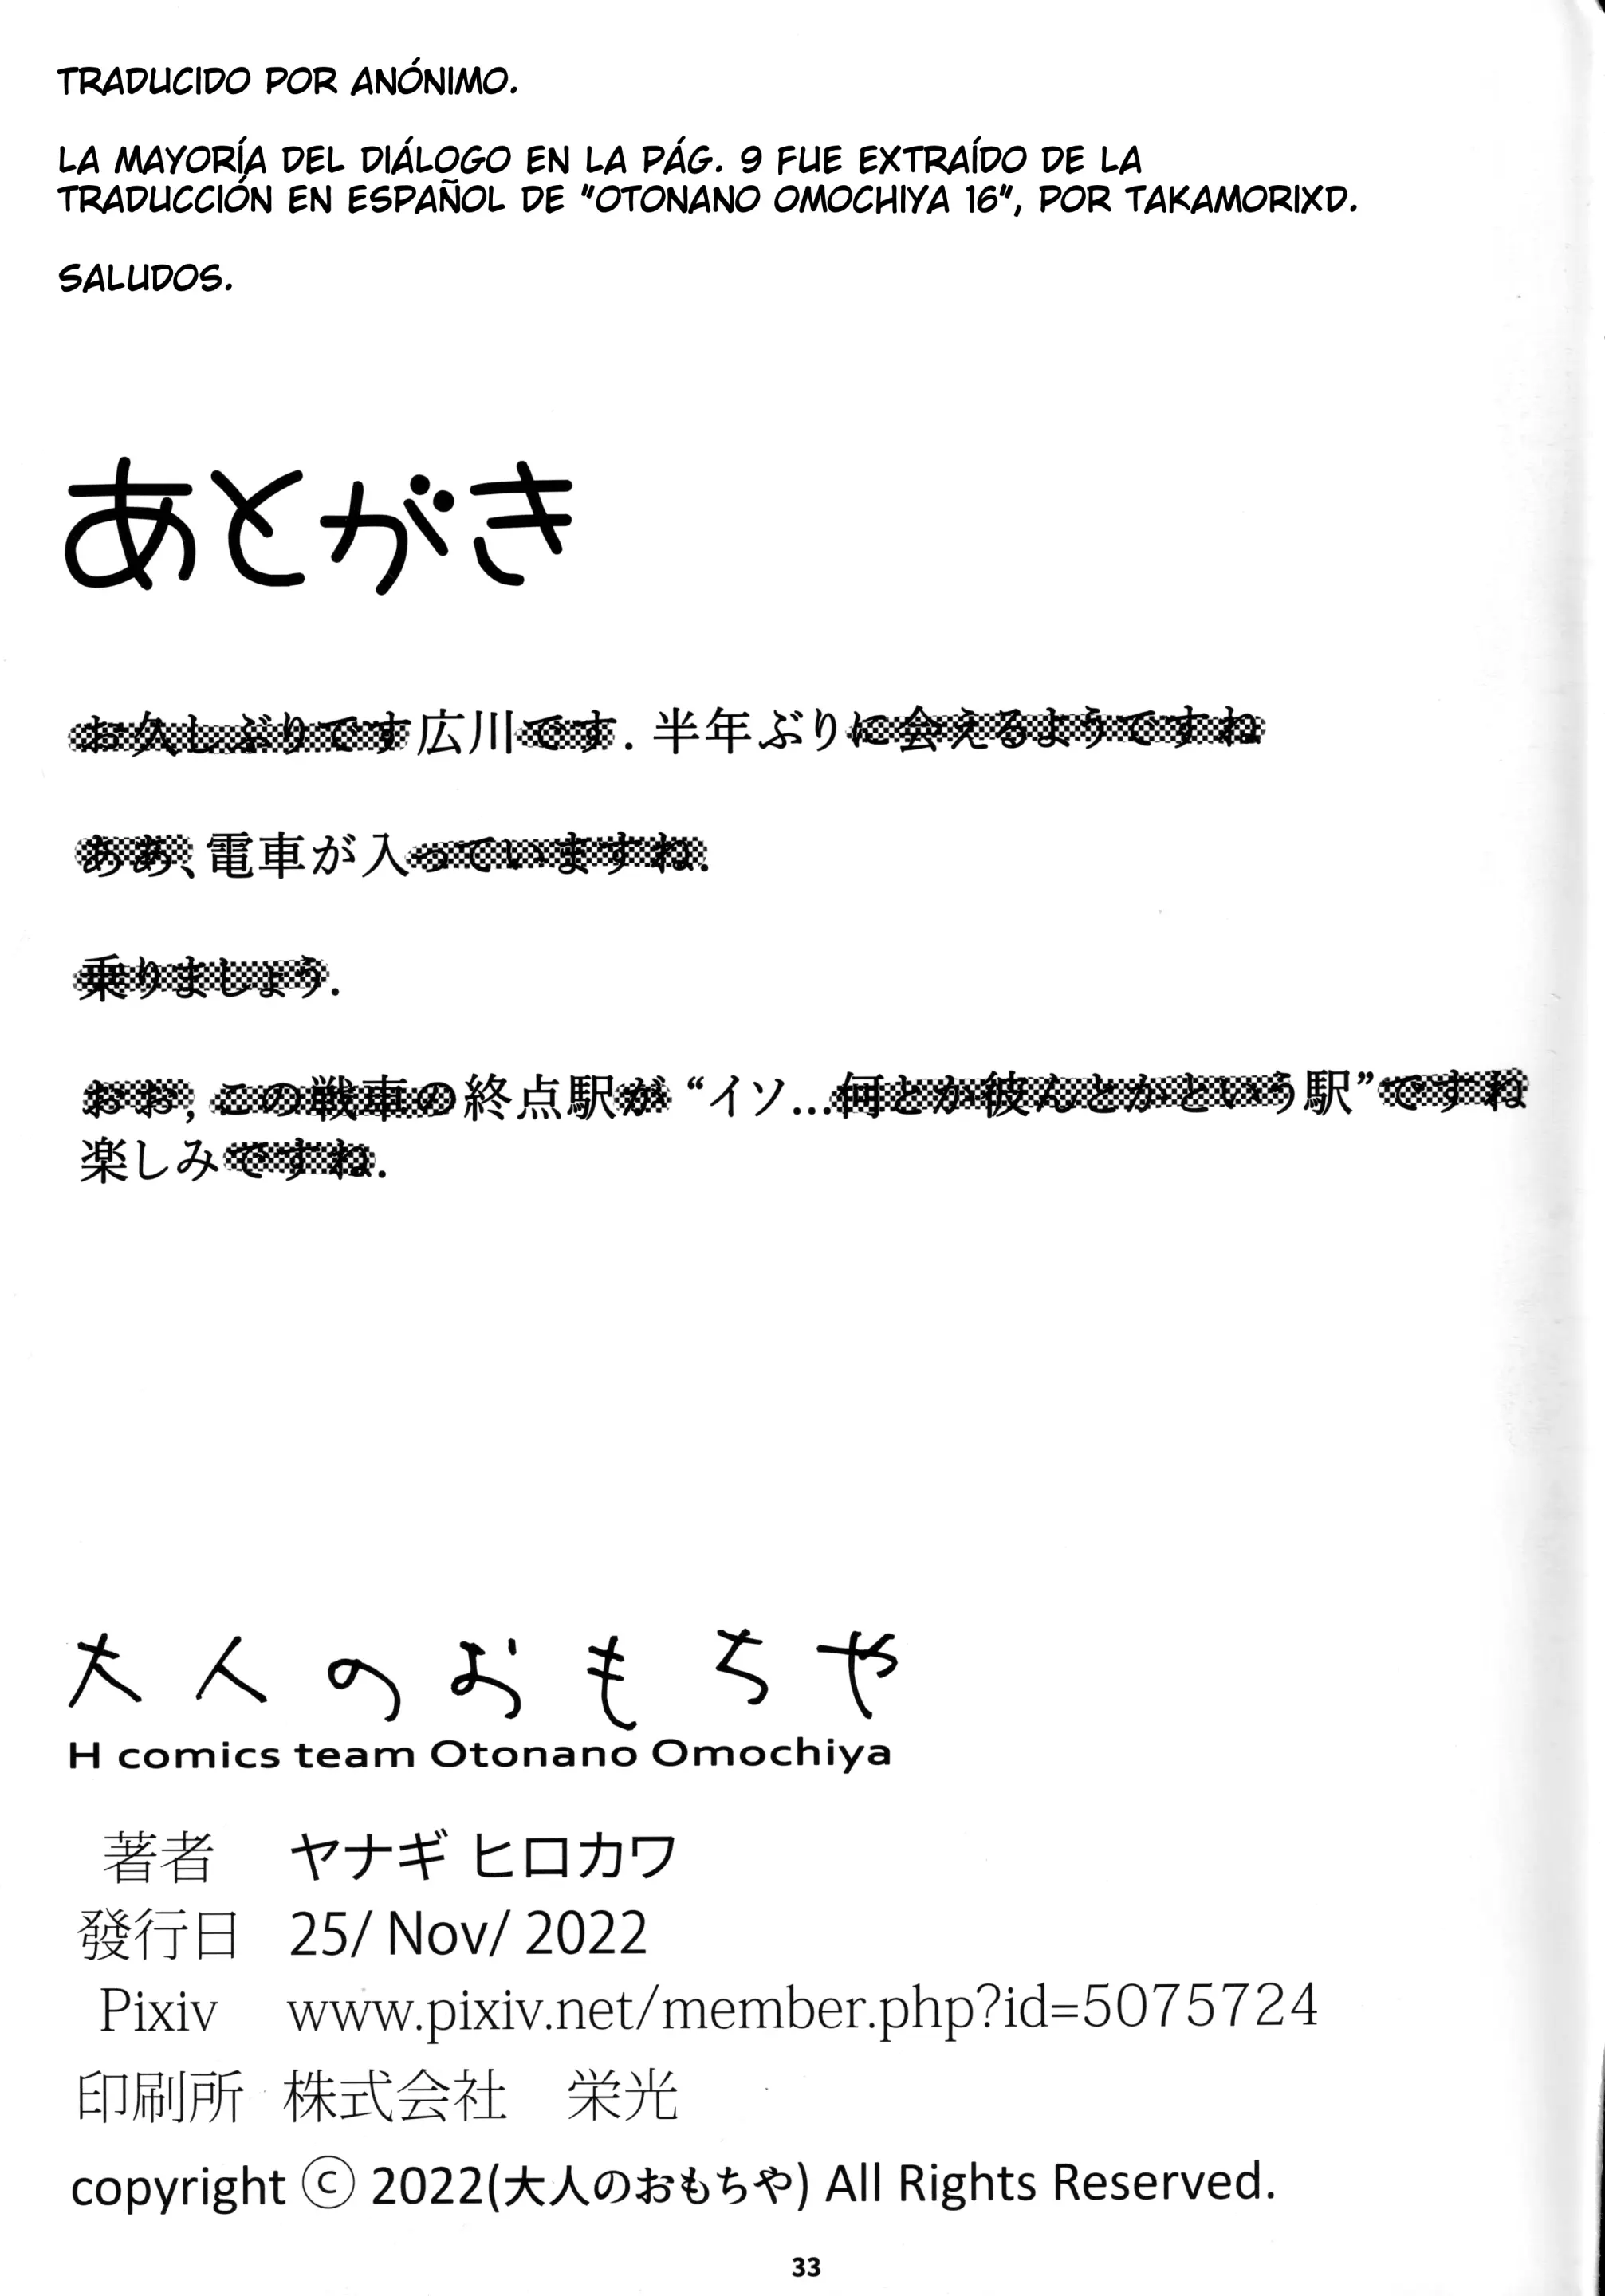 TRADUCIDO POR ANÓNIMO.
LA MAYORÍA DEL DIÁLOGO EN LA PÁG. 9 FUE EXTRAÍDO DE LA
TRADUCCIÓN EN ESPAÑOL DE "OTONANO OMOCHIYA 16", POR TAKAMORIXD.
SALUDOS.
あとがき
お久しぶりです広川です. 半年ぶりに会えるようですね
ああ、電車が入っていますね.
乗りましょう.
おお, この戦車の終点駅が “イソ...何とか彼んとかという駅”ですね
楽しみですね.
大人のおもちや
H comics team Otonano Omochiya
著者 ヤナギ ヒロカワ
發行日 25/ Nov/ 2022
Pixiv www.pixiv.net/member.php?id=5075724
印刷所 株式会社 栄光
copyright ⓒ 2022(大人のおもちや) All Rights Reserved.
33